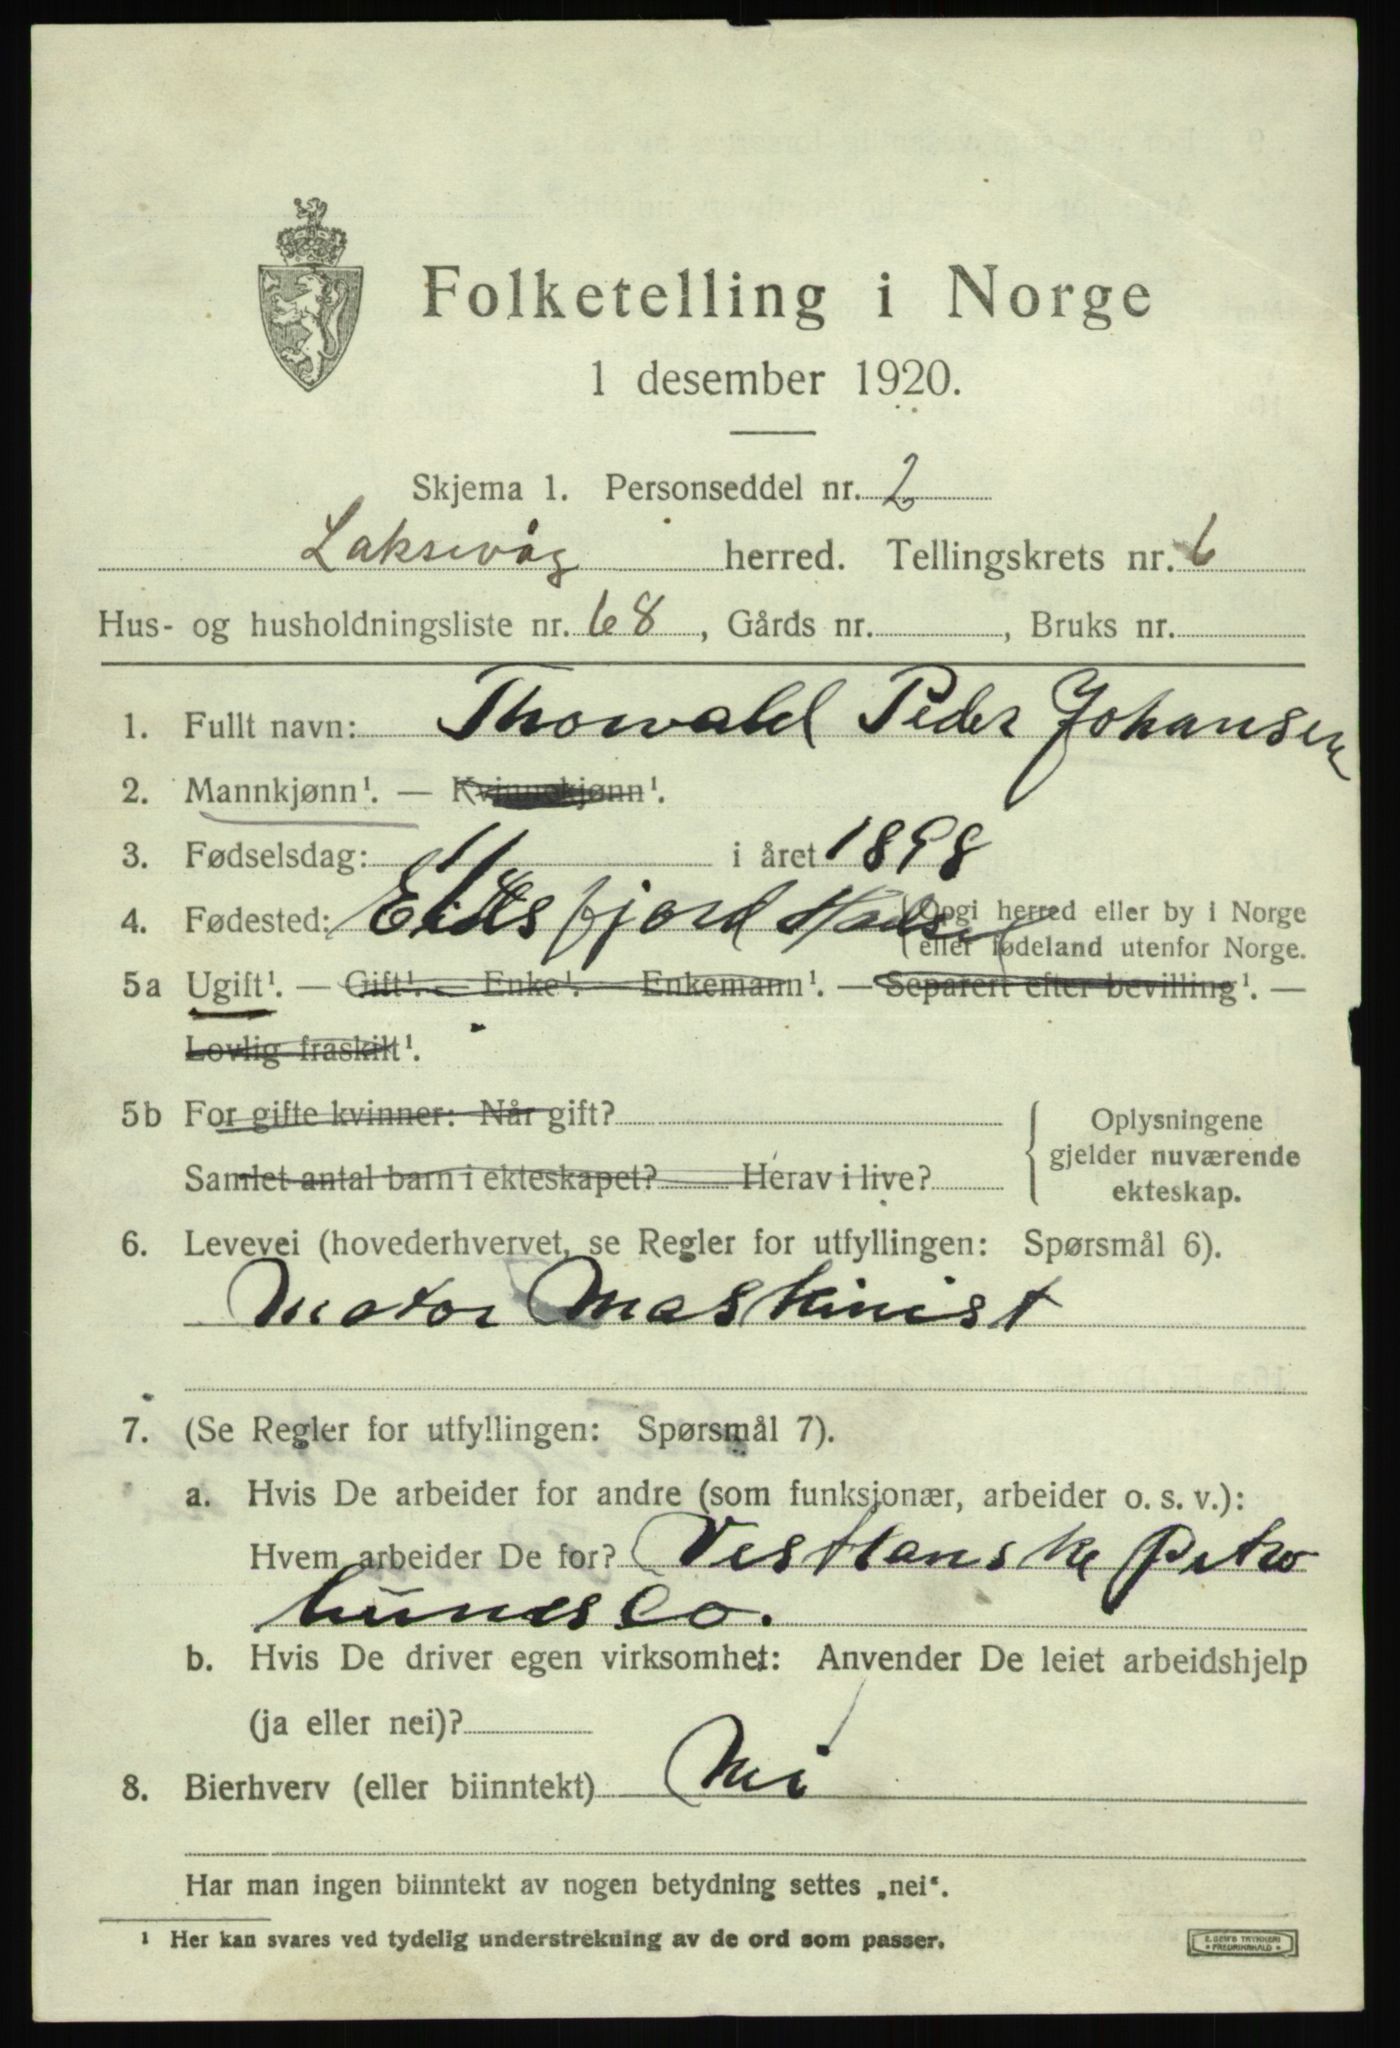 Folketelling i Norge
1 desember 1920.
Skjema 1. Personseddel nr. 2
Laksevåg herred. Tellingskrets nr. 6
Hus- og husholdningsliste nr. 68, Gårds nr. , Bruks nr.
1. Fullt navn: Thorvald Peder Johansen
2. Mannkjønn¹. — Kvinnekjønn¹.
3. Fødselsdag: 11 i året 1898
4. Fødested: Eidsfjord Hadsel (Opgi herred eller by i Norge
eller fødeland utenfor Norge.
5a Ugift¹. — Gift¹. — Enke¹. — Enkemann¹. — Separert efter bevilling¹. —
Lovlig fraskilt¹.
5b For gifte kvinner: Når gift? Oplysningene
gjelder nuværende
Samlet antal barn i ekteskapet? Herav i live? ekteskap.
6. Levevei (hovederhvervet, se Regler for utfyllingen: Spørsmål 6).
Motor Maskinist
7. (Se Regler for utfyllingen: Spørsmål 7).
a. Hvis De arbeider for andre (som funksjonær, arbeider o. s. v.):
Hvem arbeider De for? Vestlanske Petro
Co.
b. Hvis De driver egen virksomhet: Anvender De leiet arbeidshjelp
(ja eller nei)?
8. Bierhverv (eller biinntekt) Nei
Har man ingen biinntekt av nogen betydning settes „nei“.
¹ Her kan svares ved tydelig understrekning av de ord som passer.
E. SEM'S TRYKKERI
FREDRIKSHALD